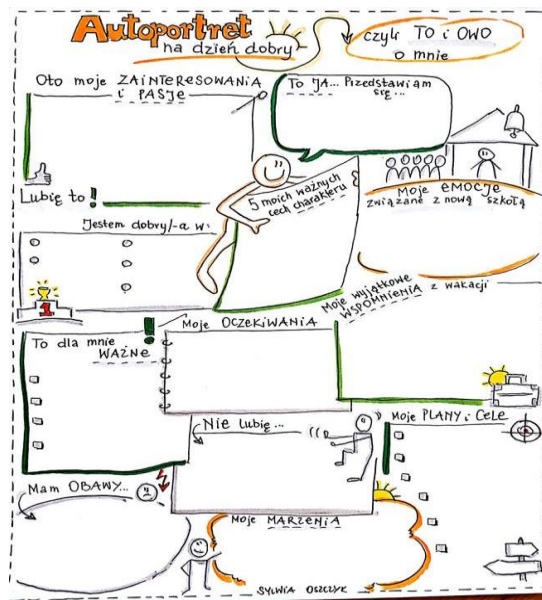 Autoportret
na dzień dobry
czyli TO i OWO
o mnie
Oto moje ZAINTERESOWANIA
i PASJE
To JA... Przedstawiam
się...
Lubię to!
5 moich ważnych
cech charakteru
Moje EMOCJE
związane z nową szkołą
Jestem dobry/-a w:
1
Moje wyjątkowe
WSPOMNIENIA z wakacji
To dla mnie
WAŻNE
!
Moje OCZEKIWANIA
Nie lubię...
Moje PLANY i CELE
Mam OBAWY...
?
Moje MARZENIA
SYLWIA OSZCZYK